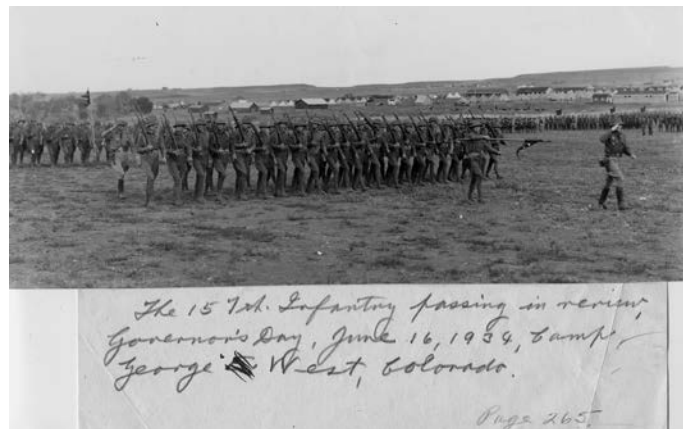 The 157th. Infantry passing in review,
Governor's Day, June 16, 1934, Camp
George West, Colorado.
Page 265.